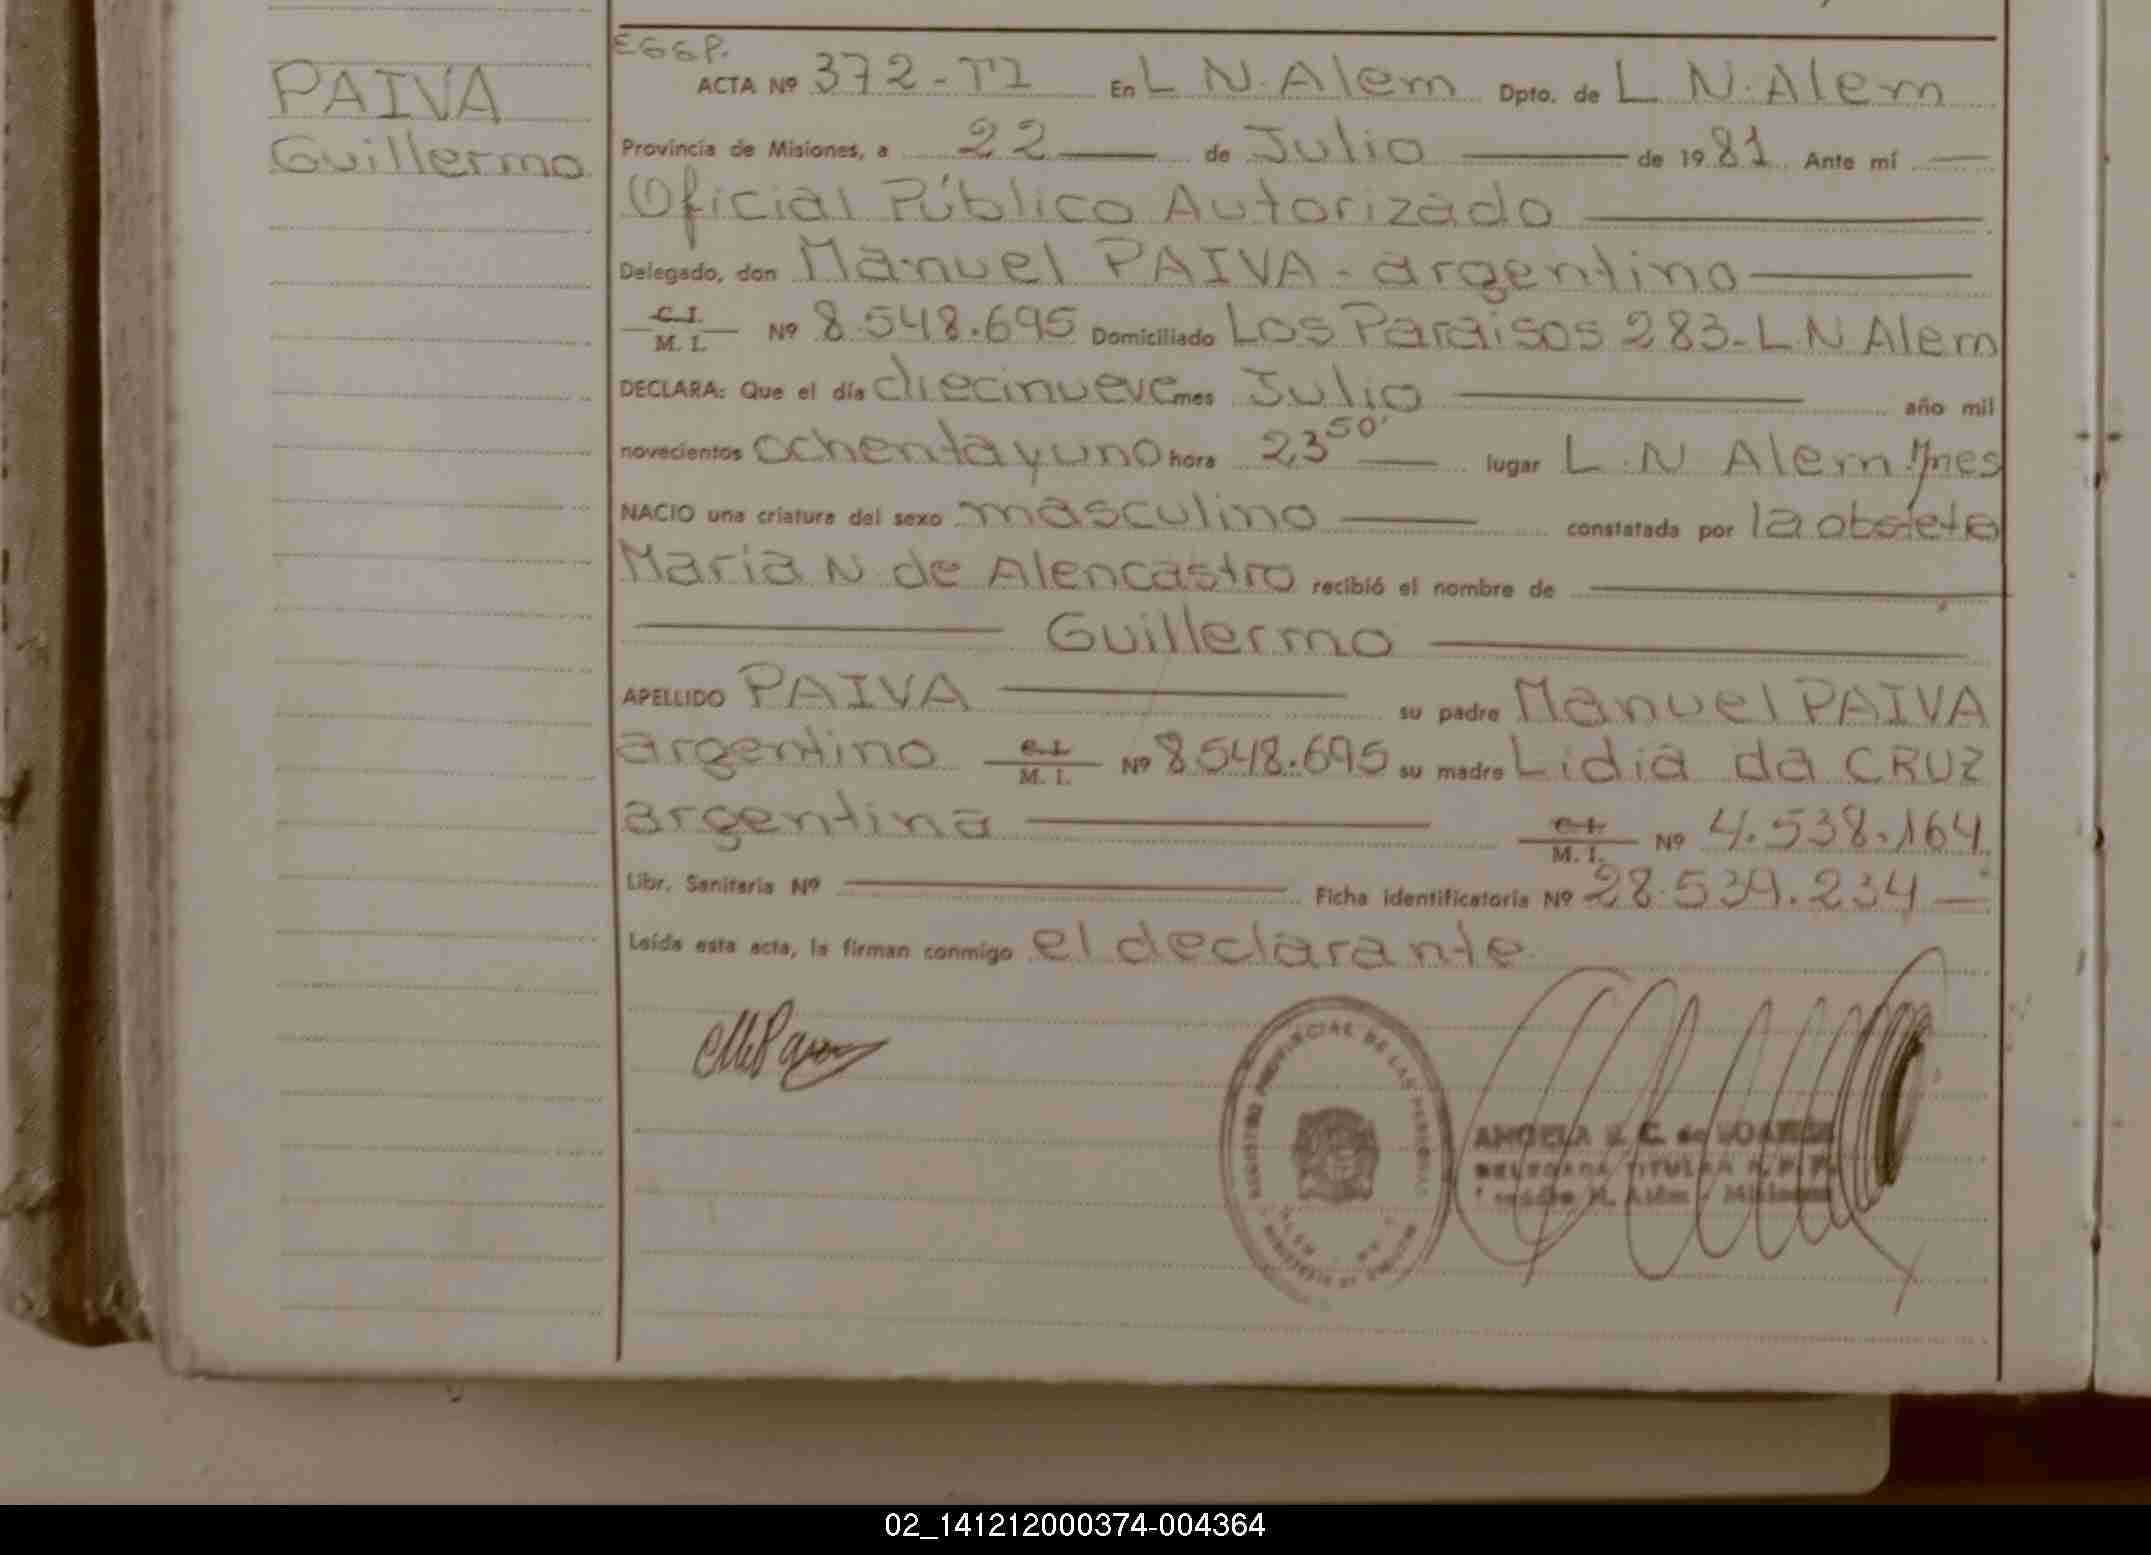 PAIVA
Guillermo
EGGP.
ACTA Nº 372-T1 En L N. Alem Dpto. de L N. Alem
Provincia de Misiones, a 22 de Julio de 1981 Ante mí
Oficial Público Autorizado
Delegado, don Manuel PAIVA - argentino
C. I.
M. I. Nº 8.548.695 Domiciliado Los Paraisos 283-L N Alem
DECLARA: Que el día diecinueve mes Julio año mil
novecientos ochentayuno hora 23 50' lugar L. N Alem Mnes
NACIO una criatura del sexo masculino constatada por la obsteta
Maria N de Alencastro recibió el nombre de
Guillermo
APELLIDO PAIVA su padre Manuel PAIVA
argentino M. I. Nº 8548.695 su madre Lidia da CRUZ
argentina M. I. Nº 4.538.164
Libr. Sanitaria Nº Ficha identificatoria Nº 28.539.234
Leída esta acta, la firman conmigo el declarante.
REGISTRO PROVINCIAL DE LAS PERSONAS
ANGELA C. de
DELEGADA TITULAR R. P. P.
N. Alem - Misiones
02_141212000374-004364